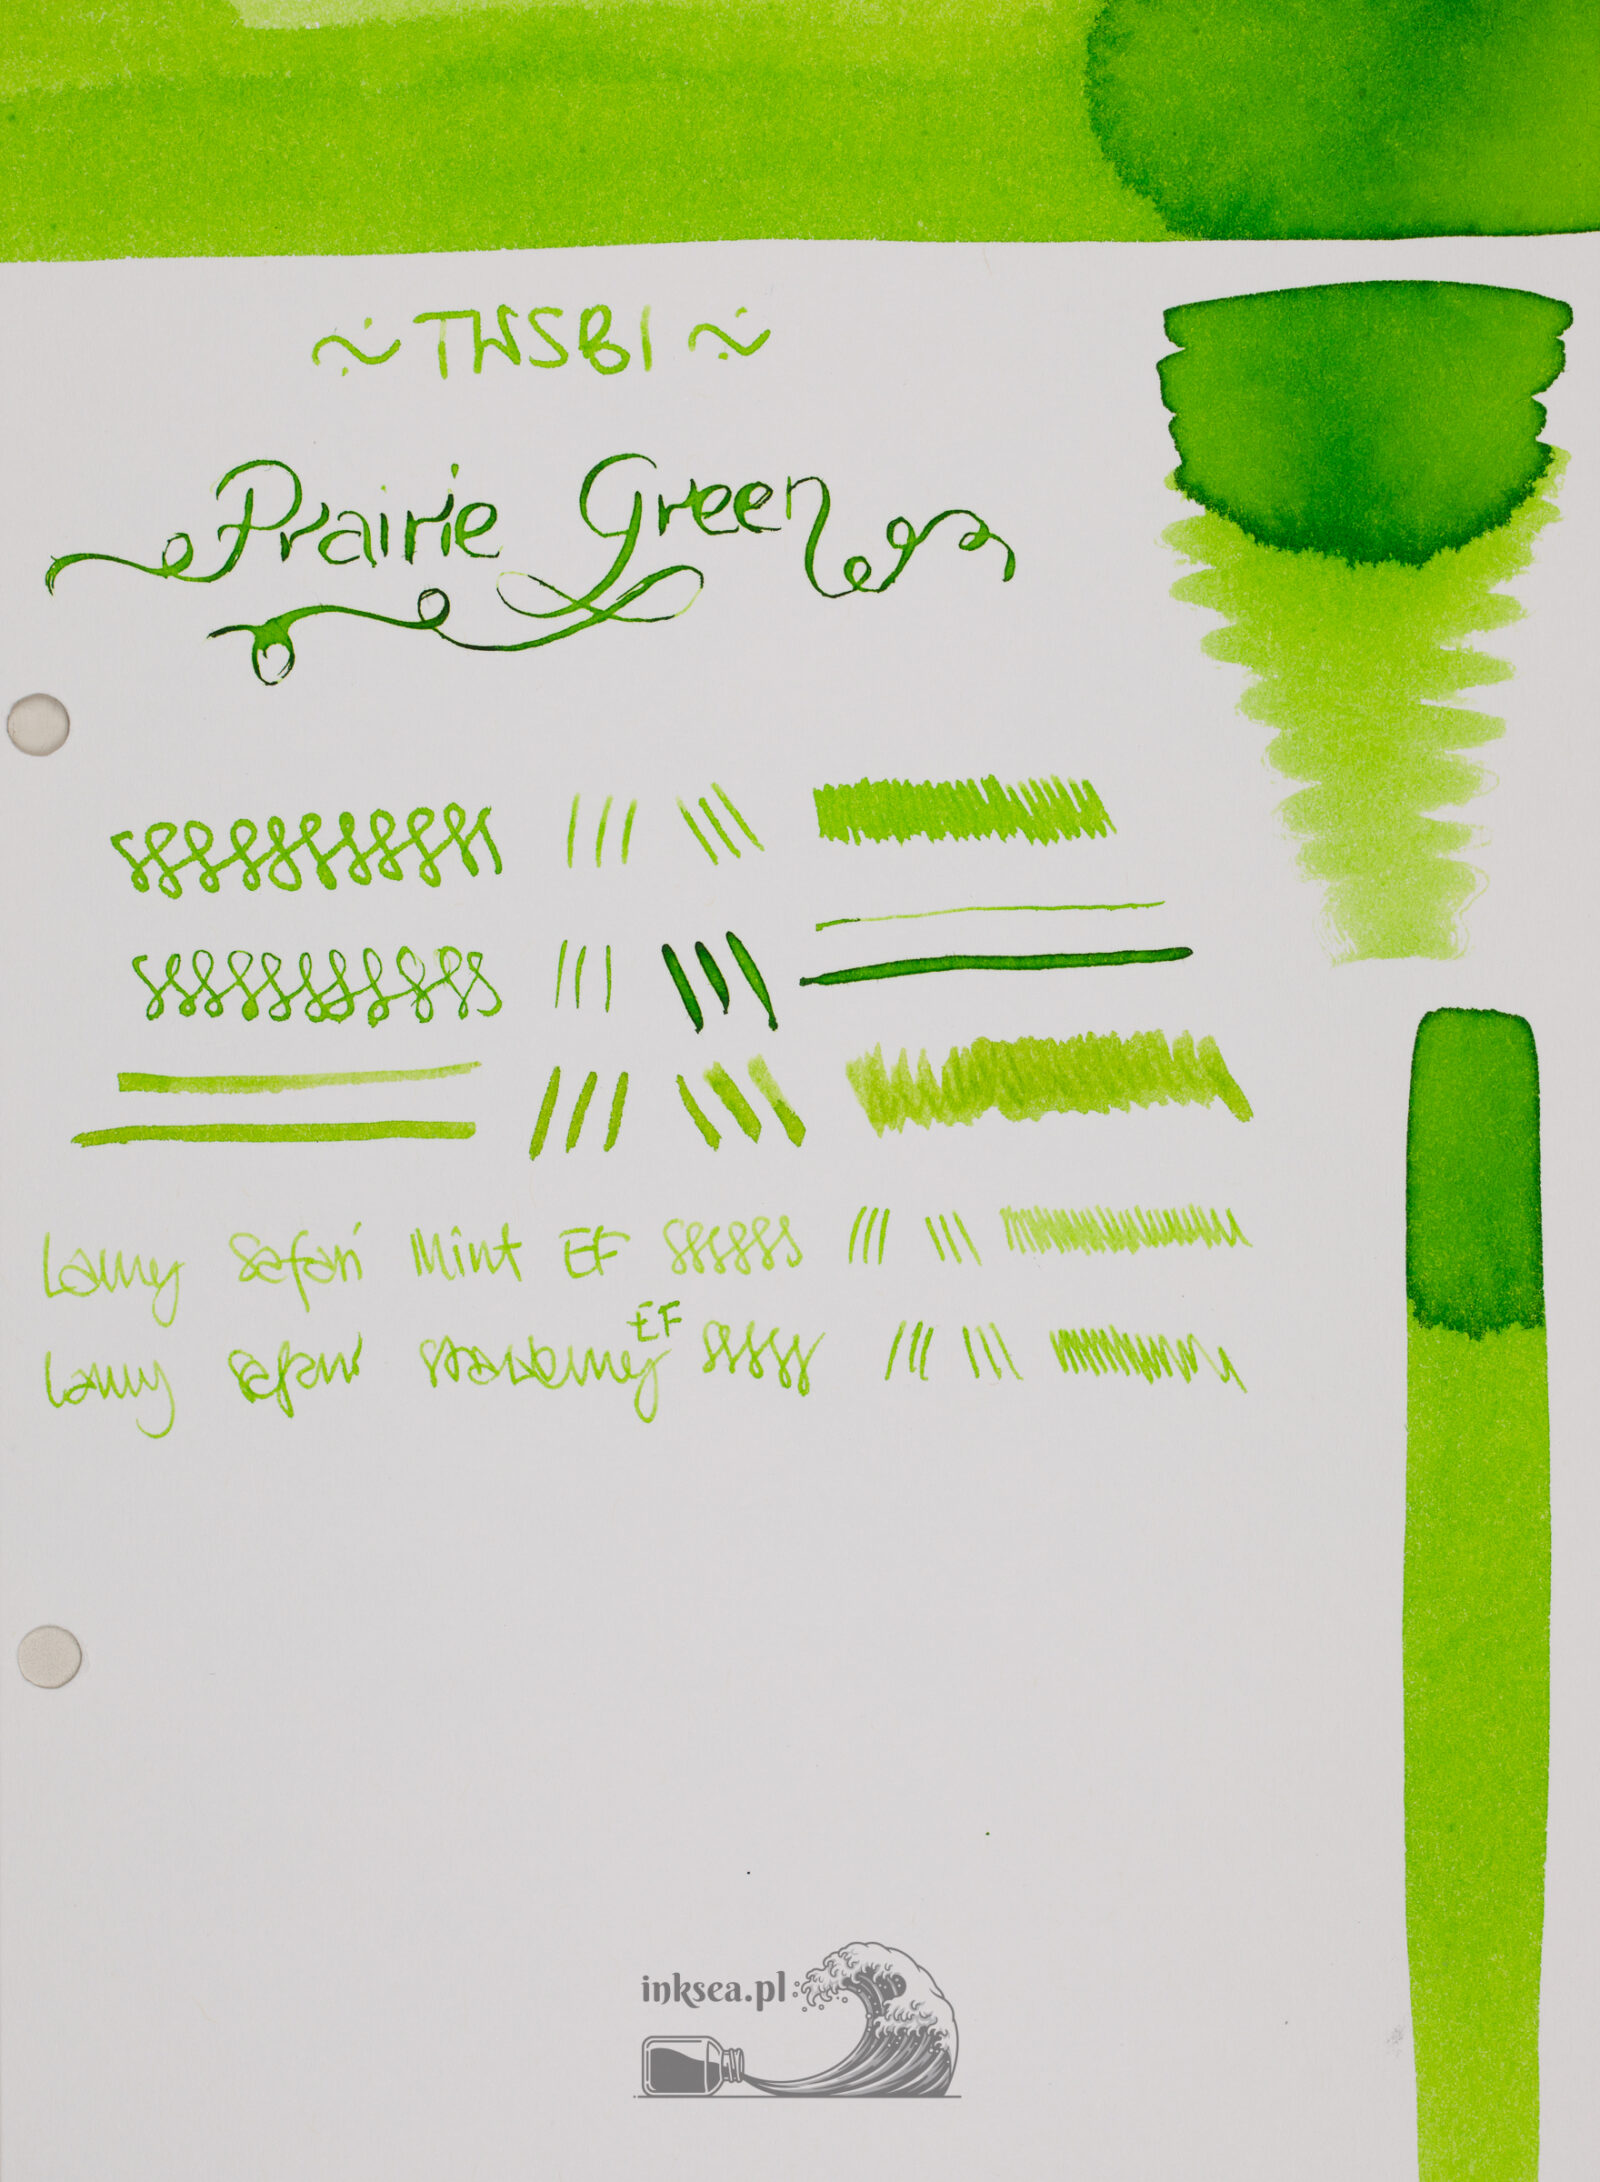 ~ TWSBI ~
Prairie Green
Lamy Safari Mint EF
Lamy Safari Strawberry EF
inksea.pl